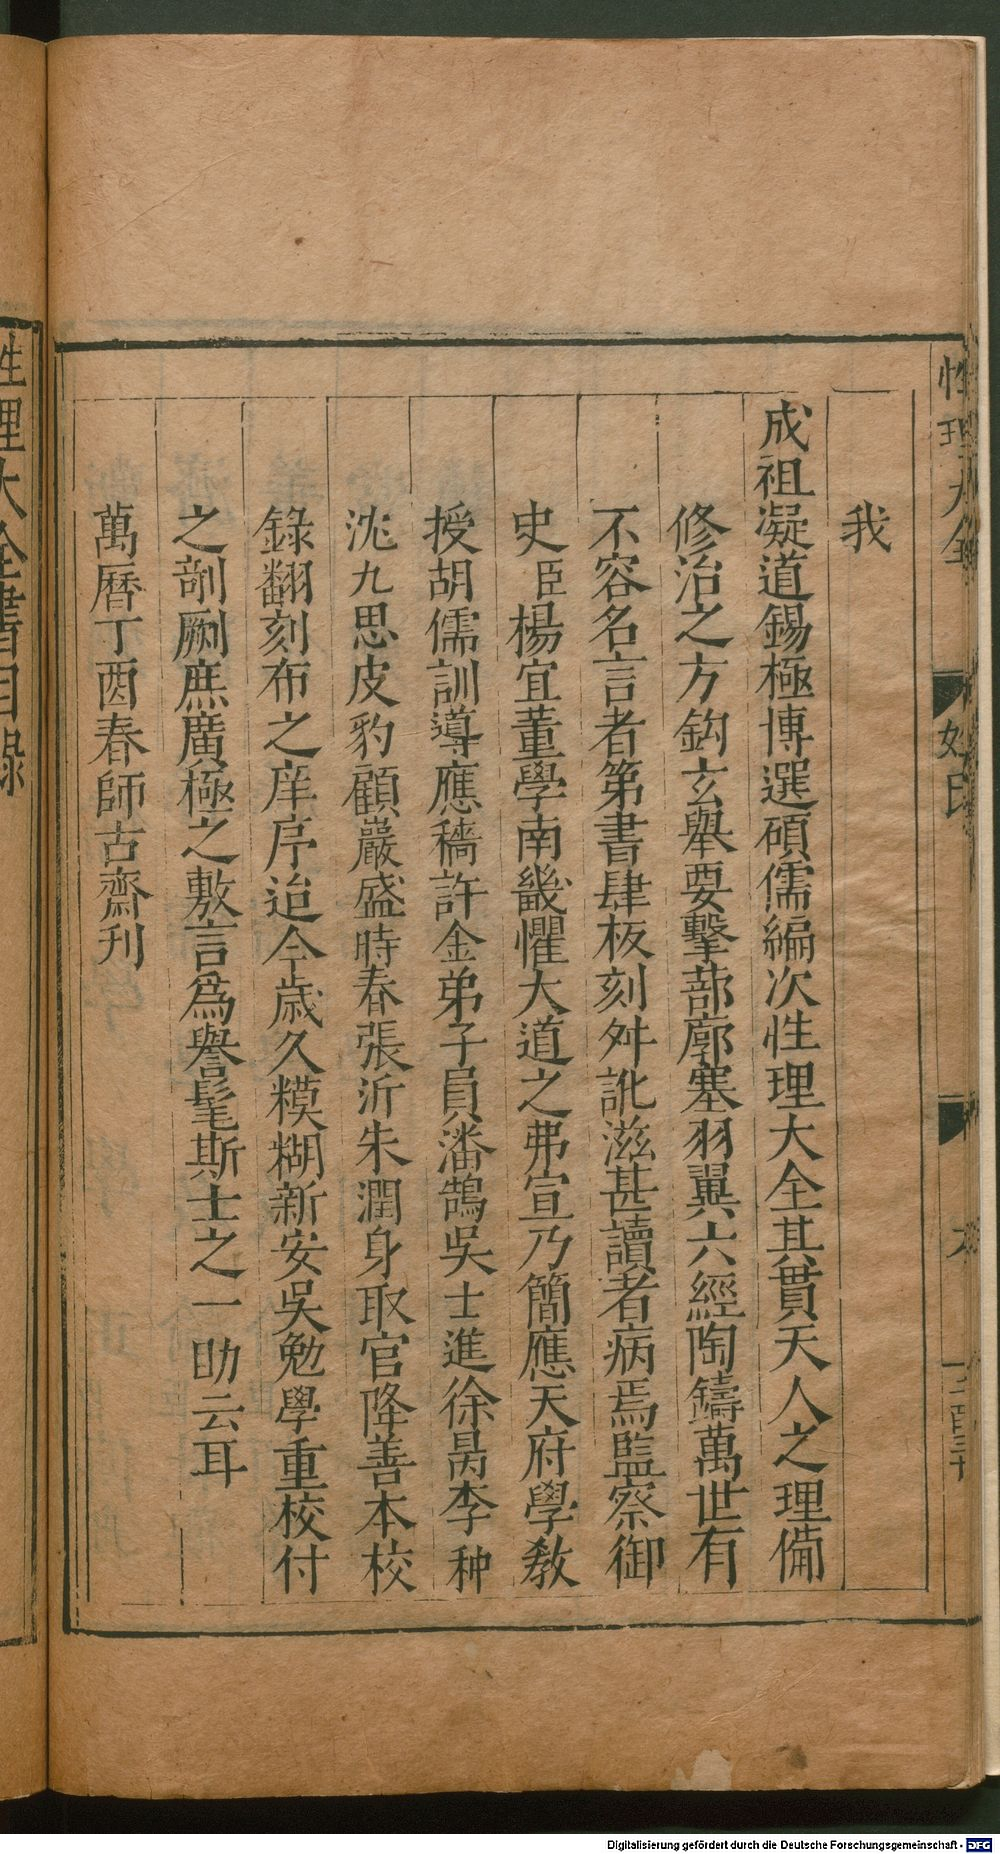 性理大全
姓氏
我
成祖凝道錫極博選碩儒編次性理大全其貫天人之理備
修治之方鈎玄舉要擊蔀廓塞羽翼六經陶鑄萬世有
不容名言者第書肆板刻舛訛滋甚讀者病焉監察御
史臣楊宜董學南畿懼大道之弗宣乃簡應天府學教
授胡儒訓導應穚許金弟子員潘鵠吳士進徐昺李种
沈九思皮豹顧巖盛時春張沂朱潤身取官降善本校
錄翻刻布之庠序迨今歲久糢糊新安吳勉學重校付
之剞劂庶廣極之敷言為譽髦斯士之一助云耳
萬曆丁酉春師古齋刊
性理大全書目錄
Digitalisierung gefördert durch die Deutsche Forschungsgemeinschaft - DFG